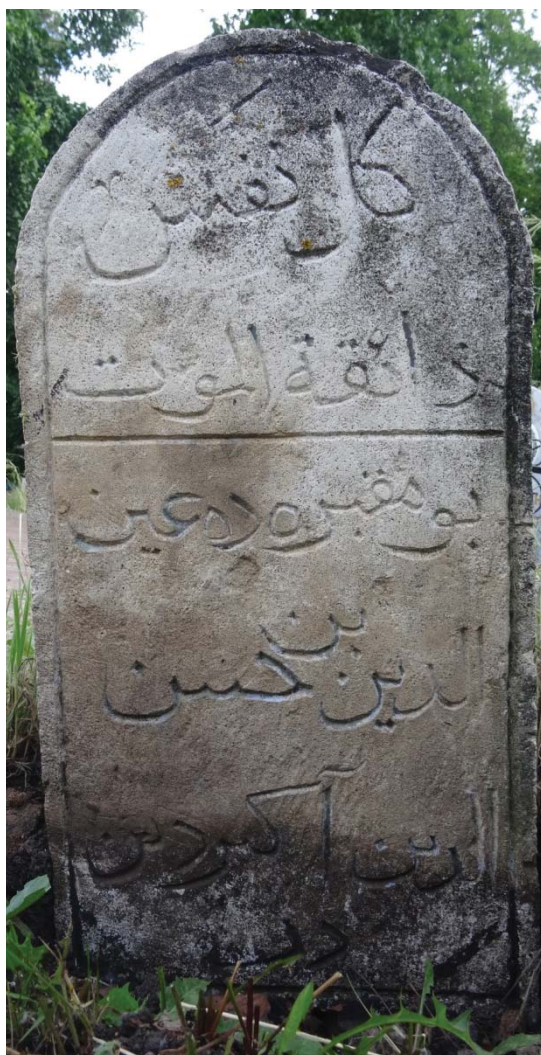 كل نفس
ذائقة الموت
بو مقبره ده عين
الدين حسن بن
الدين آكبردين